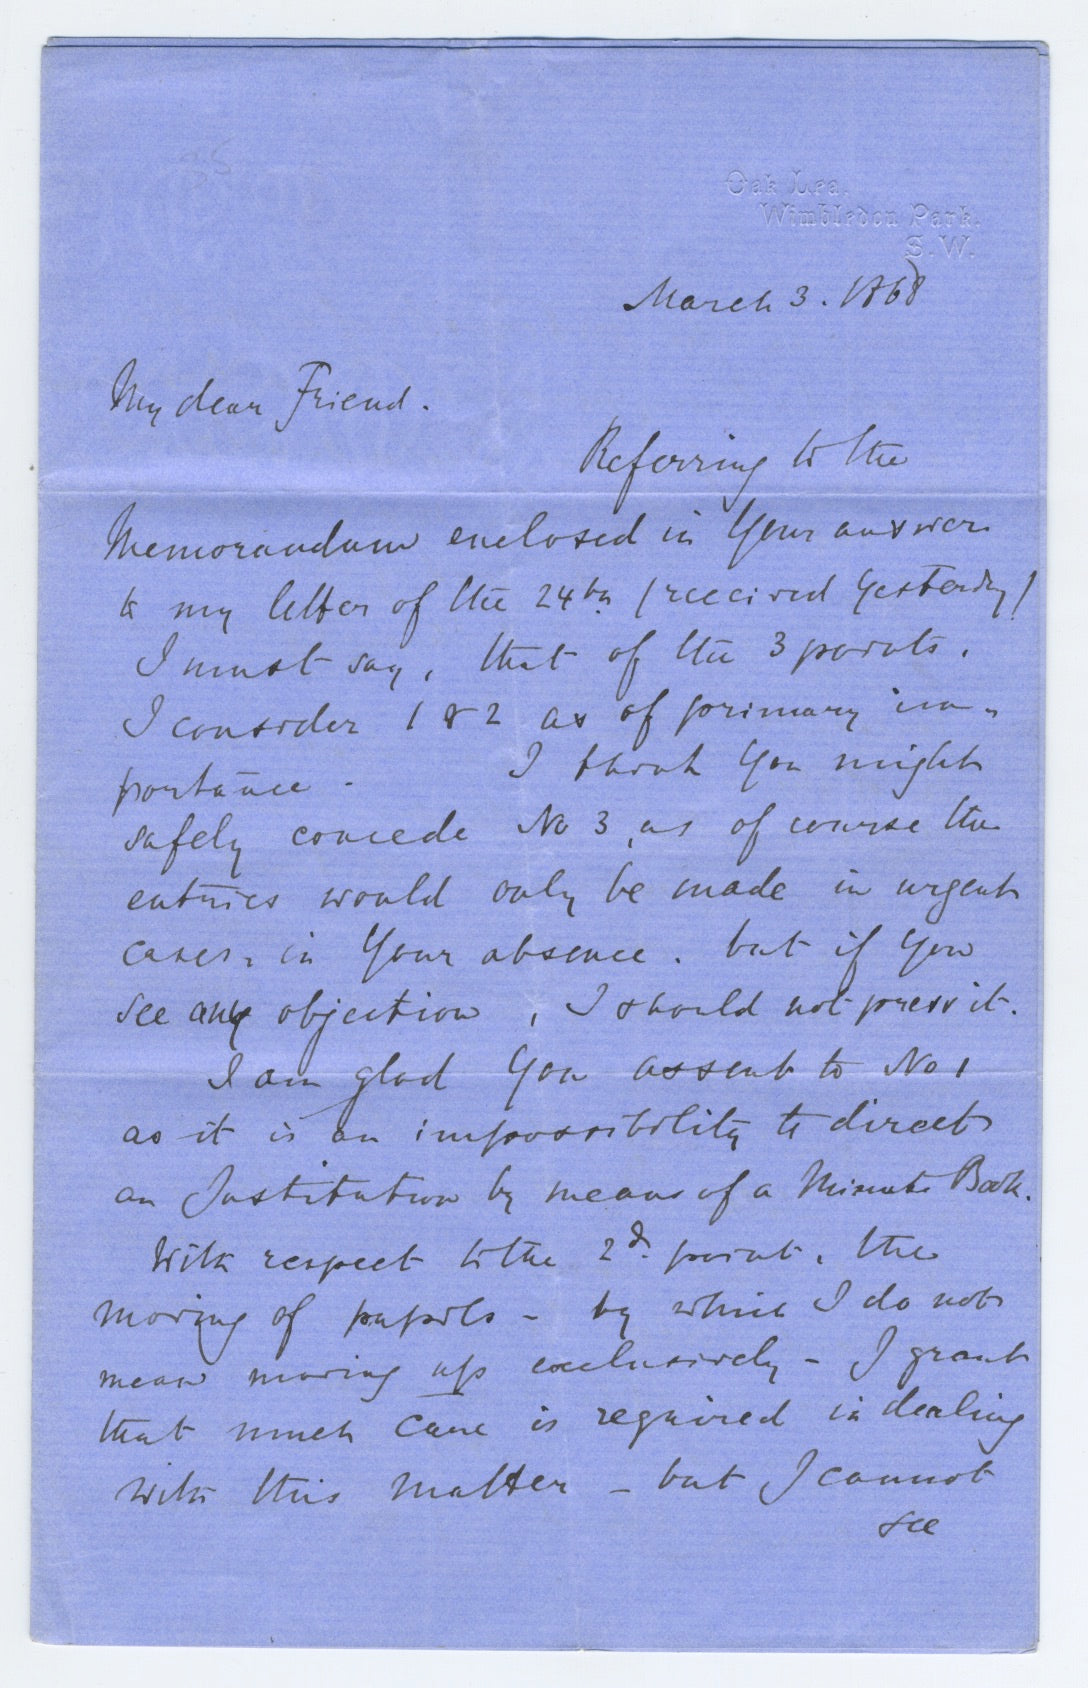 35
Oak Lea.
Wimbledon Park.
S.W.
March 3. 1868
My dear Friend.
Referring to the
Memorandum enclosed in Your answer
to my letter of the 24th (received Yesterday)
I must say, that of the 3 points,
I consider 1 & 2 as of primary im-
portance - I think You might
safely concede No 3, as of course the
entries would only be made in urgent
cases, in Your absence. but if You
see any objection, I should not press it.
I am glad You assent to No 1
as it is an impossibility to direct
an Institution by means of a Minute Book.
With respect to the 2d. point, the
moving of pupils - by which I do not
mean moving up exclusively - I grant
that much care is required in dealing
with this matter - but I cannot
see